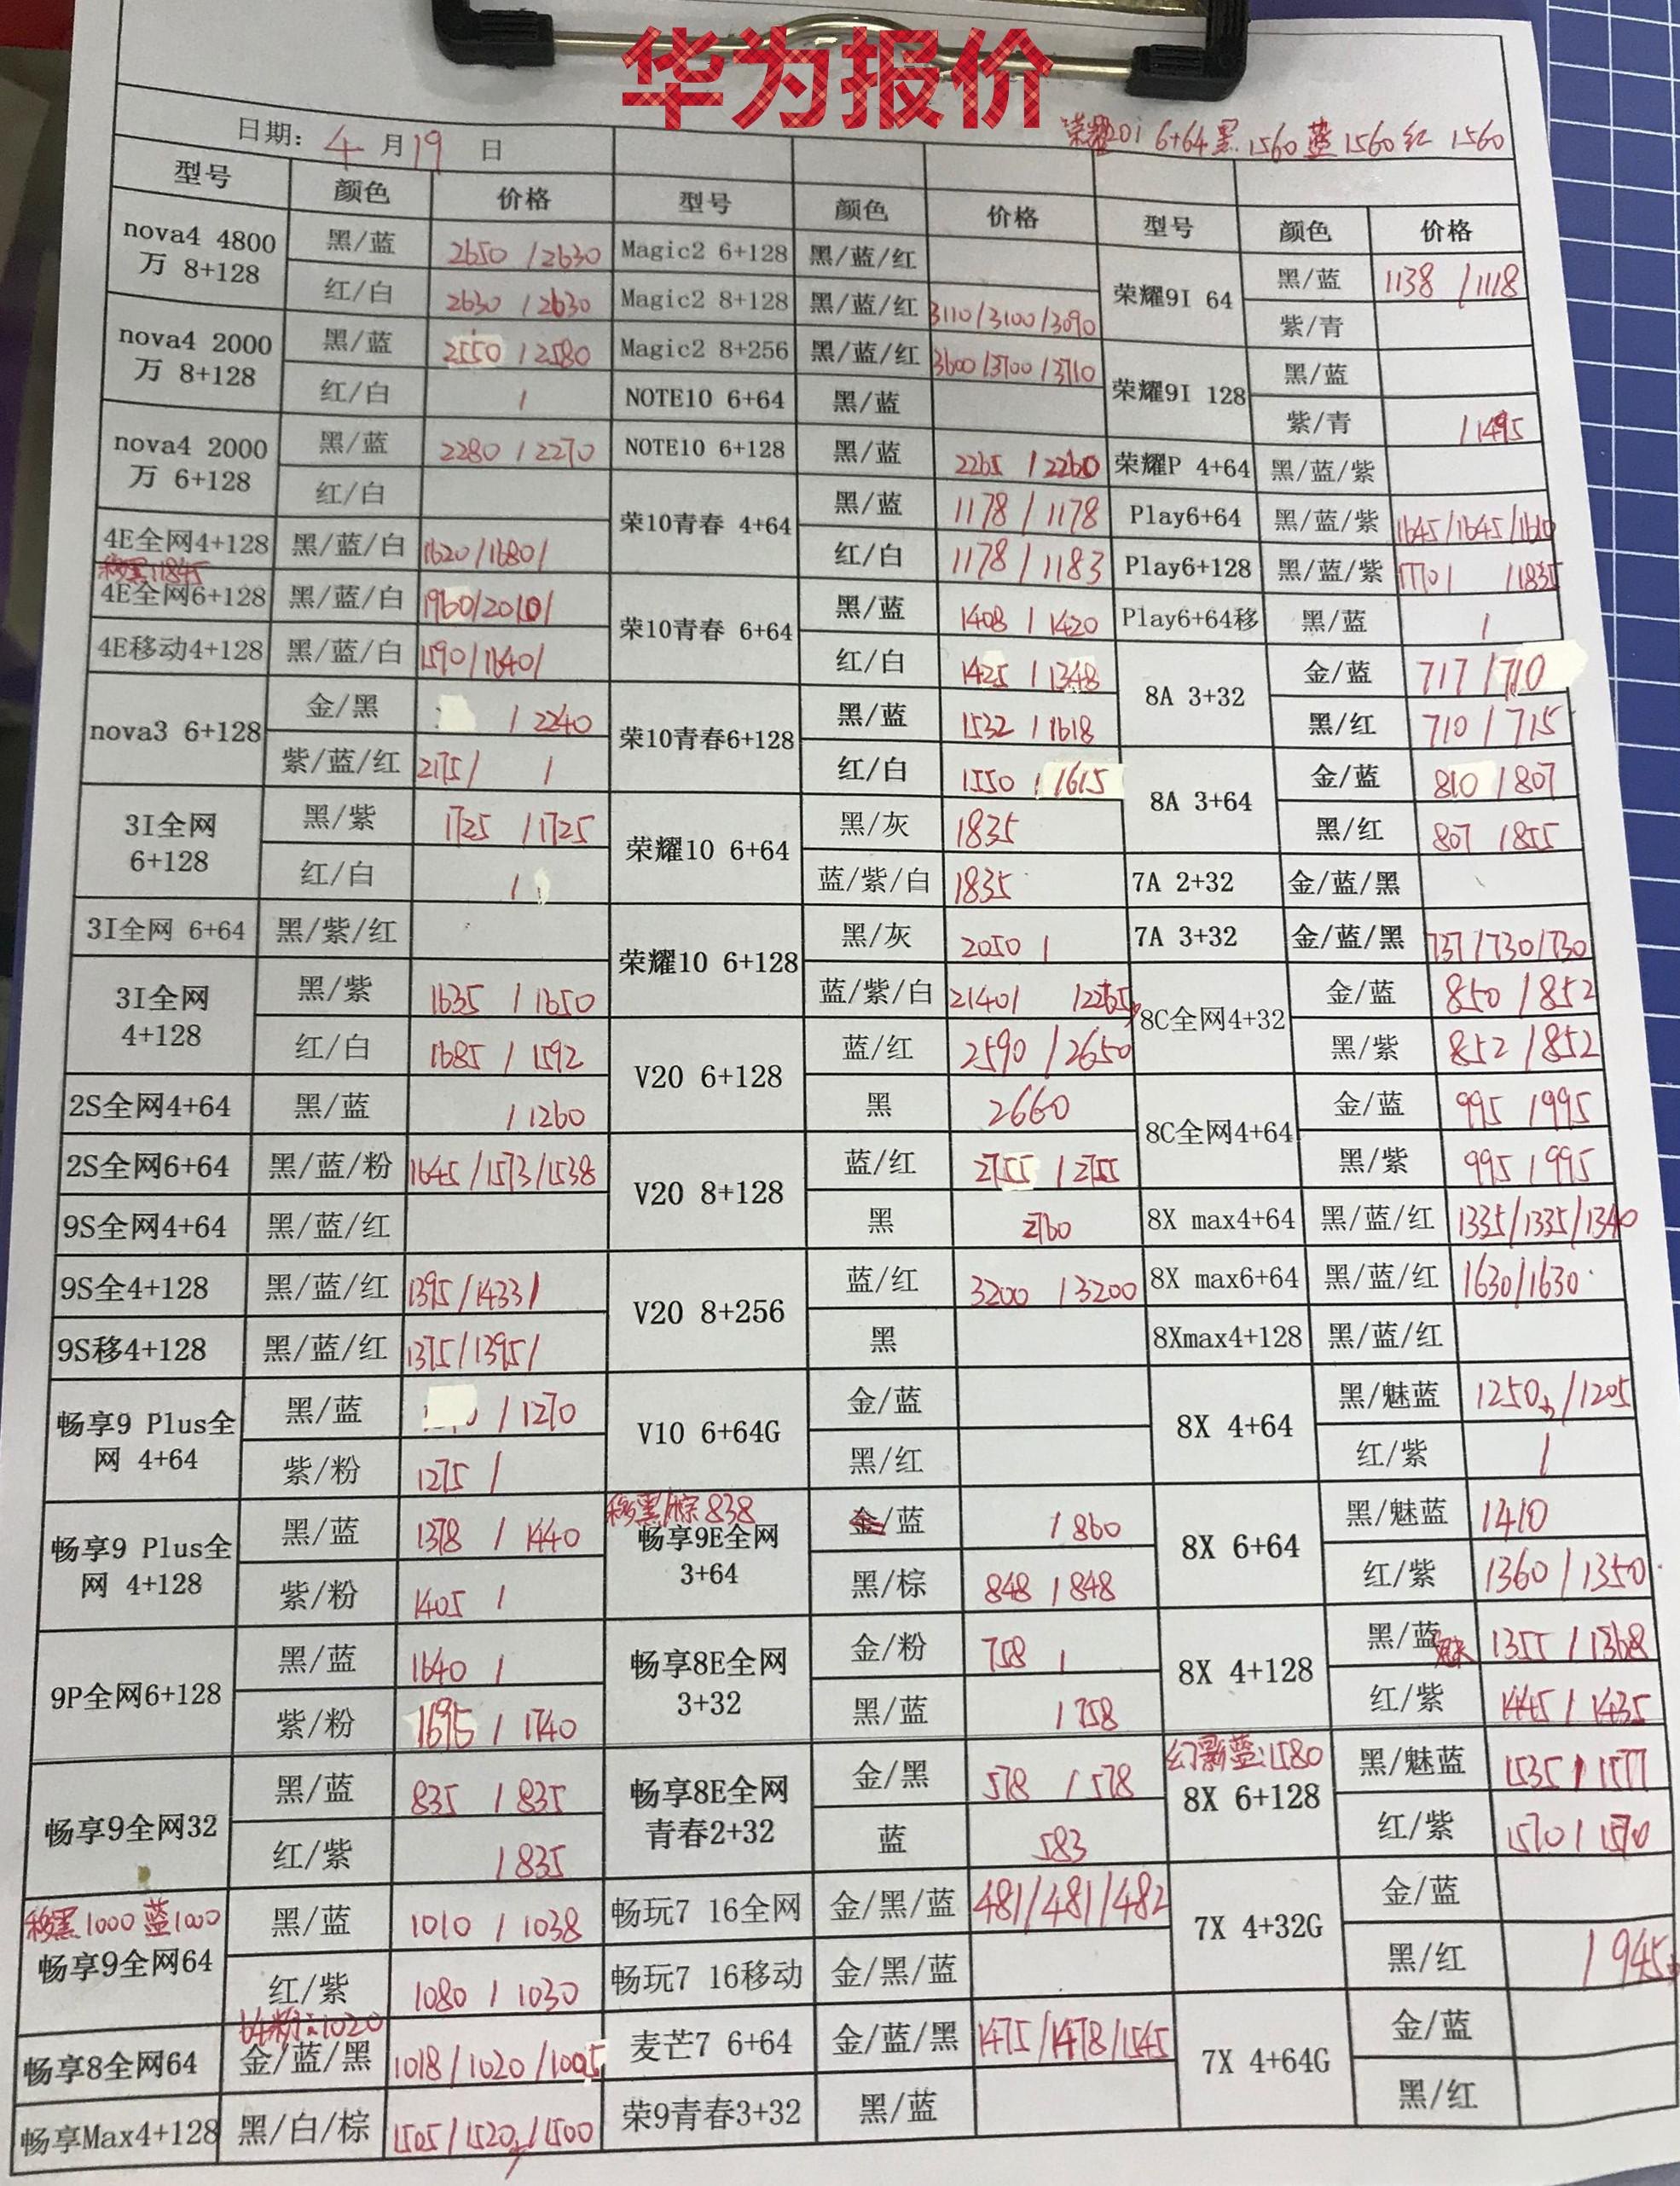 华为报价
荣耀20i 6+64 黑 1560 蓝 1560 红 1560
日期: 4 月 19 日
型号 颜色 价格 型号 颜色 价格 型号 颜色 价格
nova4 4800万 8+128 黑/蓝 2650 / 2630
红/白 2630 / 2630
nova4 2000万 8+128 黑/蓝 2550 / 2580
红/白 /
nova4 2000万 6+128 黑/蓝 2280 / 2270
红/白
4E全网4+128 黑/蓝/白 1620/1680/
移黑:1845
4E全网6+128 黑/蓝/白 1960/2010/
4E移动4+128 黑/蓝/白 1590/1640/
nova3 6+128 金/黑 / 2240
紫/蓝/红 2175/ /
3I全网 6+128 黑/紫 1725 / 1725
红/白 /
3I全网 6+64 黑/紫/红
3I全网 4+128 黑/紫 1635 / 1650
红/白 1685 / 1592
2S全网4+64 黑/蓝 / 1260
2S全网6+64 黑/蓝/粉 1645/1573/1538
9S全网4+64 黑/蓝/红
9S全4+128 黑/蓝/红 1395/1433/
9S移4+128 黑/蓝/红 1375/1395/
畅享9 Plus全网 4+64 黑/蓝 / 1270
紫/粉 1275 /
畅享9 Plus全网 4+128 黑/蓝 1378 / 1440
紫/粉 1405 /
9P全网6+128 黑/蓝 1640 /
紫/粉 1695 / 1740
畅享9全网32 黑/蓝 835 / 835
红/紫 / 835
移黑 1000 蓝 1000
畅享9全网64 黑/蓝 1010 / 1038
红/紫 1080 / 1030
64粉:1020
畅享8全网64 金/蓝/黑 1018/1020/1005
畅享Max4+128 黑/白/棕 1505/1520/1500
Magic2 6+128 黑/蓝/红
Magic2 8+128 黑/蓝/红 3110/3100/3090
Magic2 8+256 黑/蓝/红 3600/3700/3710
NOTE10 6+64 黑/蓝
NOTE10 6+128 黑/蓝 2265 / 2260
荣10青春 4+64 黑/蓝 1178 / 1178
红/白 1178 / 1183
荣10青春 6+64 黑/蓝 1408 / 1420
红/白 1425 / 1348
荣10青春6+128 黑/蓝 1532 / 1618
红/白 1550 / 1615
荣耀10 6+64 黑/灰 1835
蓝/紫/白 1835
荣耀10 6+128 黑/灰 2050 /
蓝/紫/白 2140/ /2265
V20 6+128 蓝/红 2590 / 2650
黑 2660
V20 8+128 蓝/红 2755 / 2755
黑 2760
V20 8+256 蓝/红 3200 / 3200
黑
V10 6+64G 金/蓝
黑/红
移黑/棕 838
畅享9E全网 3+64 金/蓝 / 860
黑/棕 848 / 848
畅享8E全网 3+32 金/粉 758 /
黑/蓝 / 758
畅享8E全网 青春2+32 金/黑 578 / 578
蓝 583
畅玩7 16全网 金/黑/蓝 481/481/482
畅玩7 16移动 金/黑/蓝
麦芒7 6+64 金/蓝/黑 1475/1478/1545
荣9青春3+32 黑/蓝
荣耀9I 64 黑/蓝 1138 / 1118
紫/青
荣耀9I 128 黑/蓝
紫/青 / 1495
荣耀P 4+64 黑/蓝/紫
Play6+64 黑/蓝/紫 1645/1645/1610
Play6+128 黑/蓝/紫 1770/ /1835
Play6+64移 黑/蓝 /
8A 3+32 金/蓝 717 / 710
黑/红 710 / 715
8A 3+64 金/蓝 810 / 807
黑/红 807 / 855
7A 2+32 金/蓝/黑
7A 3+32 金/蓝/黑 737/730/730
8C全网4+32 金/蓝 850 / 852
黑/紫 852 / 852
8C全网4+64 金/蓝 995 / 995
黑/紫 995 / 995
8X max4+64 黑/蓝/红 1335/1335/1340
8X max6+64 黑/蓝/红 1630/1630
8Xmax4+128 黑/蓝/红
8X 4+64 黑/魅蓝 1250 / 1205
红/紫 /
8X 6+64 黑/魅蓝 1410
红/紫 1360 / 1350
8X 4+128 黑/蓝 1355 / 1368
红/紫 1445 / 1435
幻影蓝:1580
8X 6+128 黑/魅蓝 1535 / 1577
红/紫 1570 / 1570
7X 4+32G 金/蓝
黑/红 / 945
7X 4+64G 金/蓝
黑/红